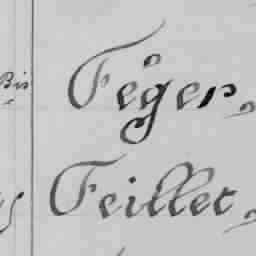 Bis
Féger
Feillet